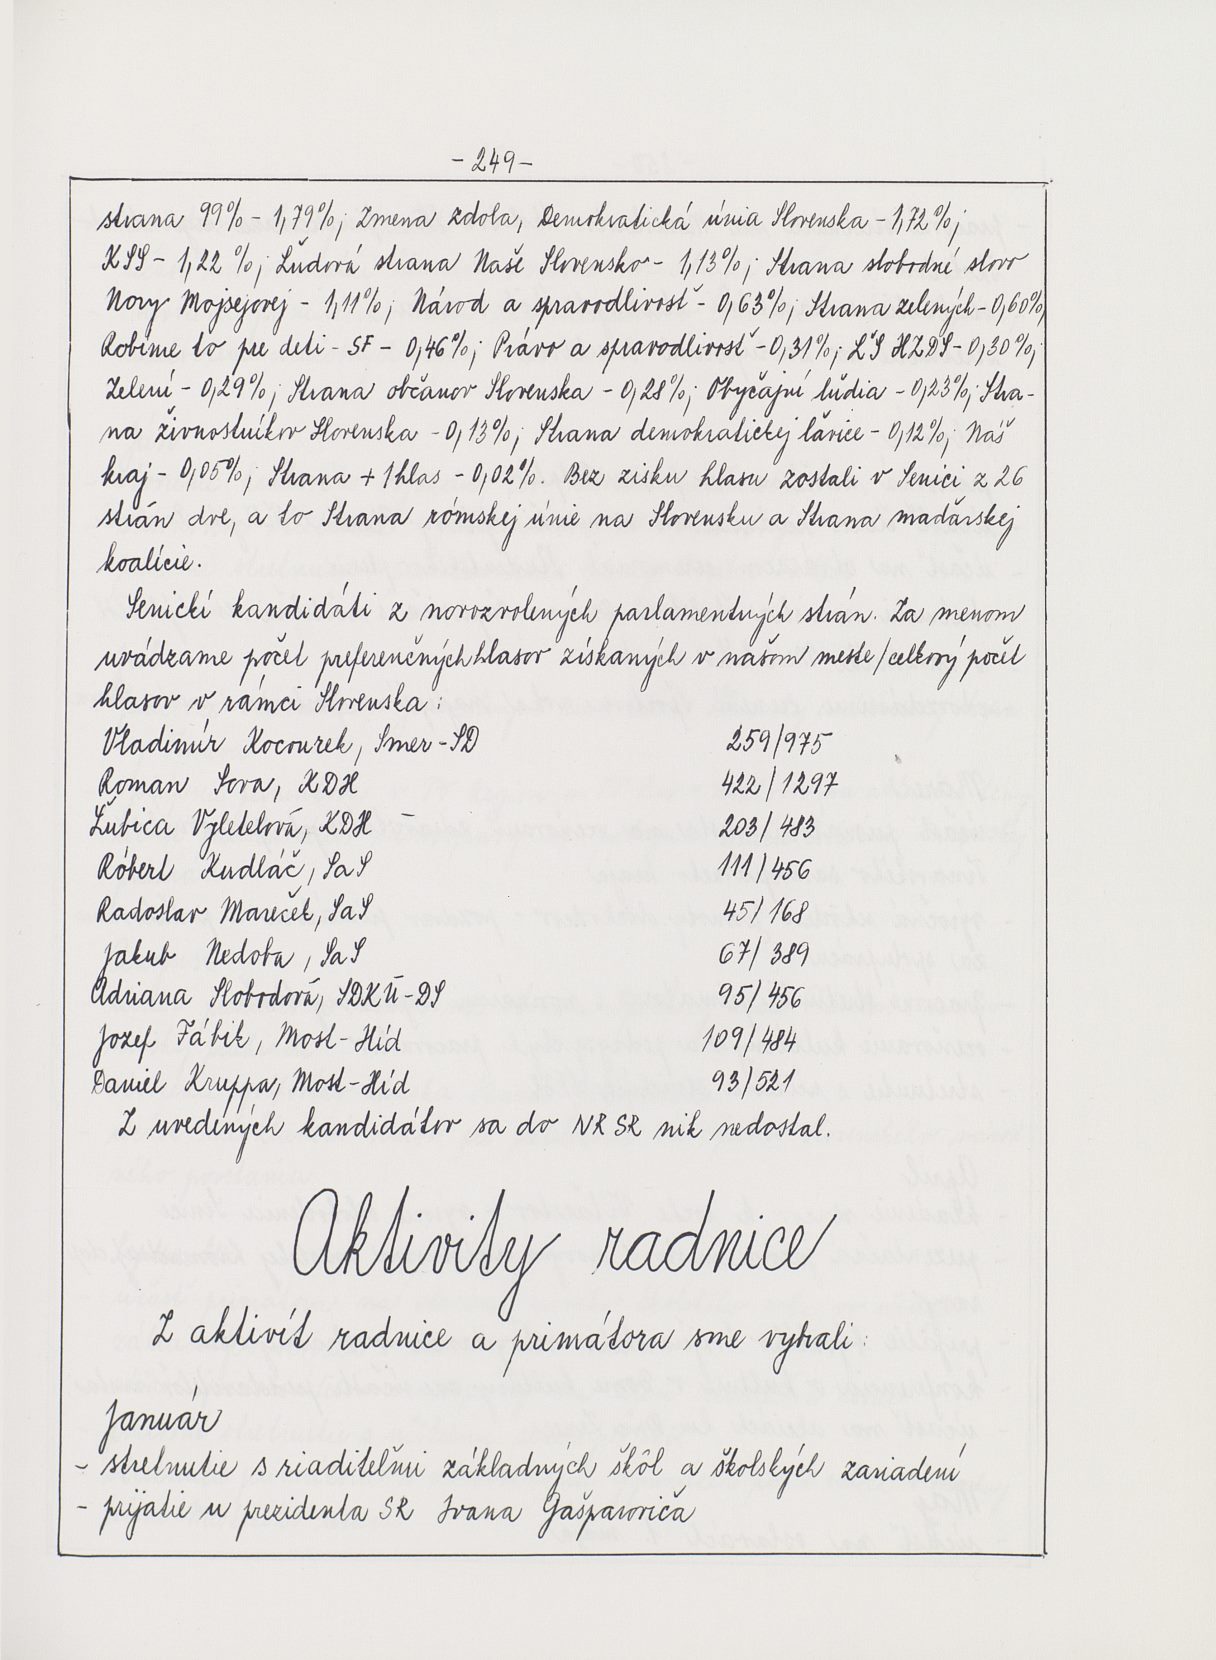 - 249 -
strana 99% - 1,79%; Zmena zdola, Demokratická únia Slovenska - 1,72%;
KSS - 1,22 %; Ľudová strana Naše Slovensko - 1,13%; Strana slobodné slovo
Nory Mojsejovej - 1,11%; Národ a spravodlivosť - 0,63%; Strana zelených - 0,60%;
Robíme to pre deti - SF - 0,46%; Právo a spravodlivosť - 0,31%; ĽS HZDS - 0,30%;
Zelení - 0,29%; Strana občanov Slovenska - 0,28%; Obyčajní ľudia - 0,23%; Stra-
na živnostníkov Slovenska - 0,13%; Strana demokratickej ľavice - 0,12%; Náš
kraj - 0,05%; Strana + 1 hlas - 0,02%. Bez zisku hlasu zostali v Senici z 26
strán dve, a to Strana rómskej únie na Slovensku a Strana maďarskej
koalície.
Senickí kandidáti z novozvolených parlamentných strán. Za menom
uvádzame počet preferenčných hlasov získaných v našom meste / celkový počet
hlasov v rámci Slovenska:
Vladimír Kocourek, Smer-SD 259/975
Roman Sova, KDH 422/1297
Ľubica Vyletelová, KDH - 203/483
Róbert Kudláč, SaS 111/456
Radoslav Mareček, SaS 45/168
Jakub Nedoba, SaS 67/389
Adriana Slobodová, SDKÚ-DS 95/456
Jozef Fábik, Most-Híd 109/484
Daniel Kruppa, Most-Híd 93/521
Z uvedených kandidátov sa do NR SR nik nedostal.
Aktivity radnice
Z aktivít radnice a primátora sme vybrali:
Január
- stretnutie s riaditeľmi základných škôl a školských zariadení
- prijatie u prezidenta SR Ivana Gašparoviča